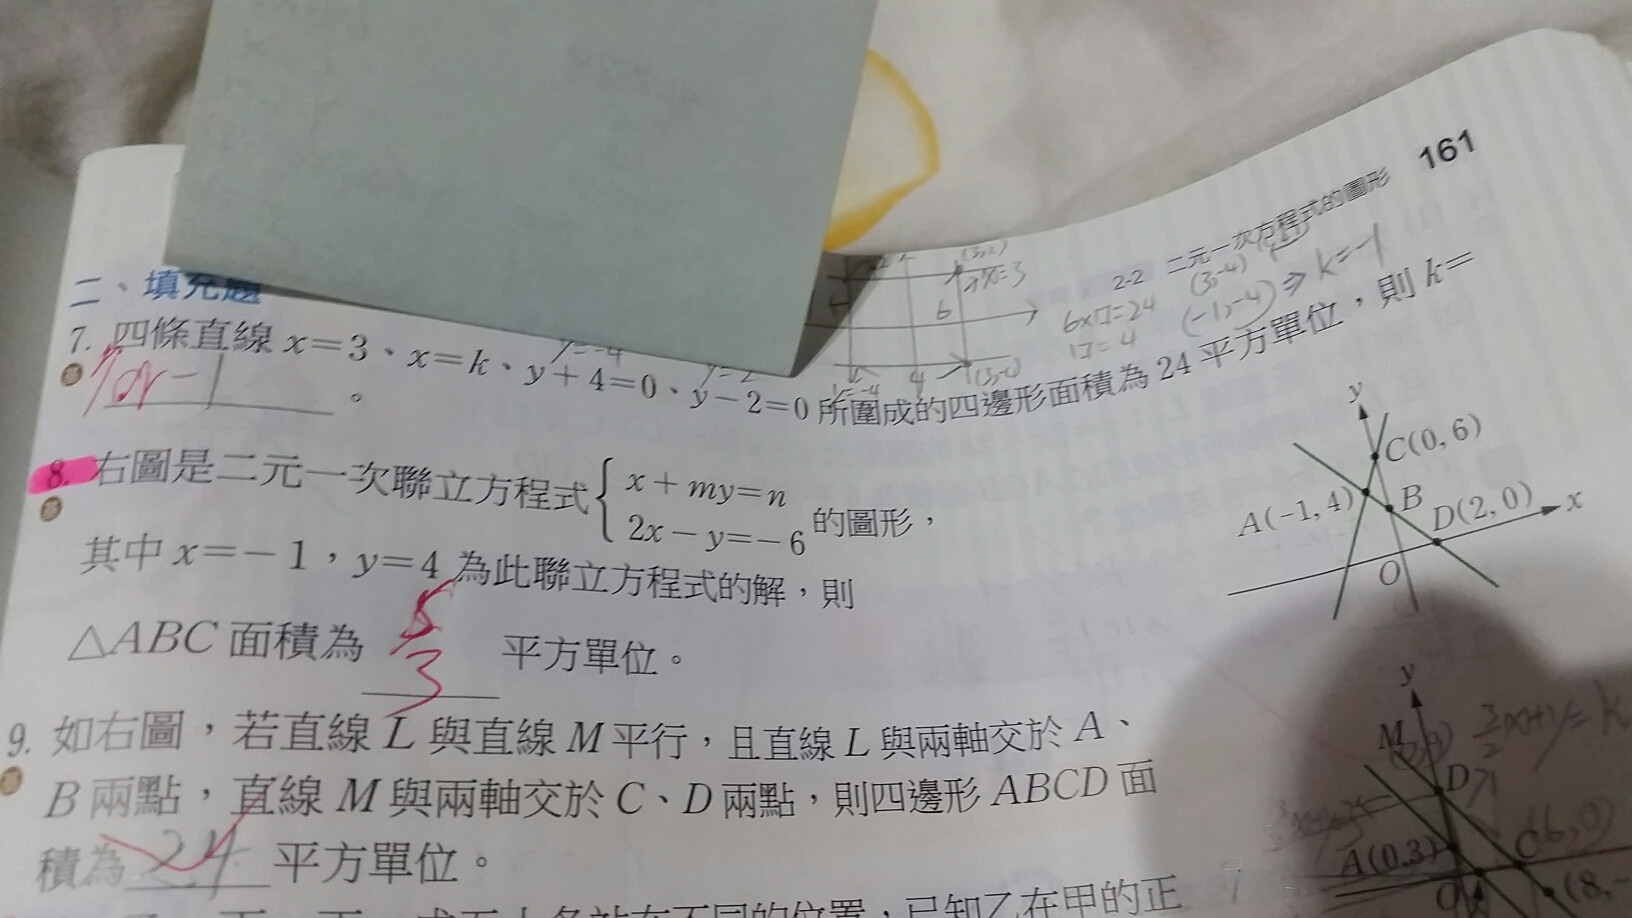 2-2 二元一次方程式的圖形 161
二、填充題
7. 四條直線 x=3、x=k、y+4=0、y-2=0 所圍成的四邊形面積為 24 平方單位，則 k=
7或-1 。
y=-4
y=2
x=3
(3,2)
6
4
6×口=24
口=4
(3,-4)
(-1,-4) ⇒ k=-1
8. 右圖是二元一次聯立方程式 { x+my=n
2x-y=-6 的圖形，
其中 x=-1，y=4 為此聯立方程式的解，則
△ABC 面積為 5/3 平方單位。
y
C(0, 6)
A(-1, 4)
B
D(2, 0)
x
O
9. 如右圖，若直線 L 與直線 M 平行，且直線 L 與兩軸交於 A、
B 兩點，直線 M 與兩軸交於 C、D 兩點，則四邊形 ABCD 面
積為 24 平方單位。
y
M
D
A(0,3)
C(6,0)
(8,-